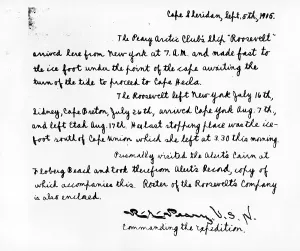 Cape Sheridan, Sept. 5th, 1905.
The Peary Arctic Club's Ship "Roosevelt"
arrived here from New York at 7 A.M. and made fast to
the ice foot under the point of the cape awaiting the
turn of the tide to proceed to Cape Hecla.
The Roosevelt left New York July 16th,
Sidney, Cape Breton, July 26th, arrived Cape York Aug. 7th,
and left Etah Aug. 17th. Her last stopping place was the ice-
foot south of Cape Union which she left at 3.30 this morning
Personally visited the Alert's Cairn at
Floeberg Beach and took therefrom Alert's Record, copy of
which accompanies this. Roster of the Roosevelt's Company
is also enclosed.
R. E. Peary, U.S.N.
Commanding the Expedition.